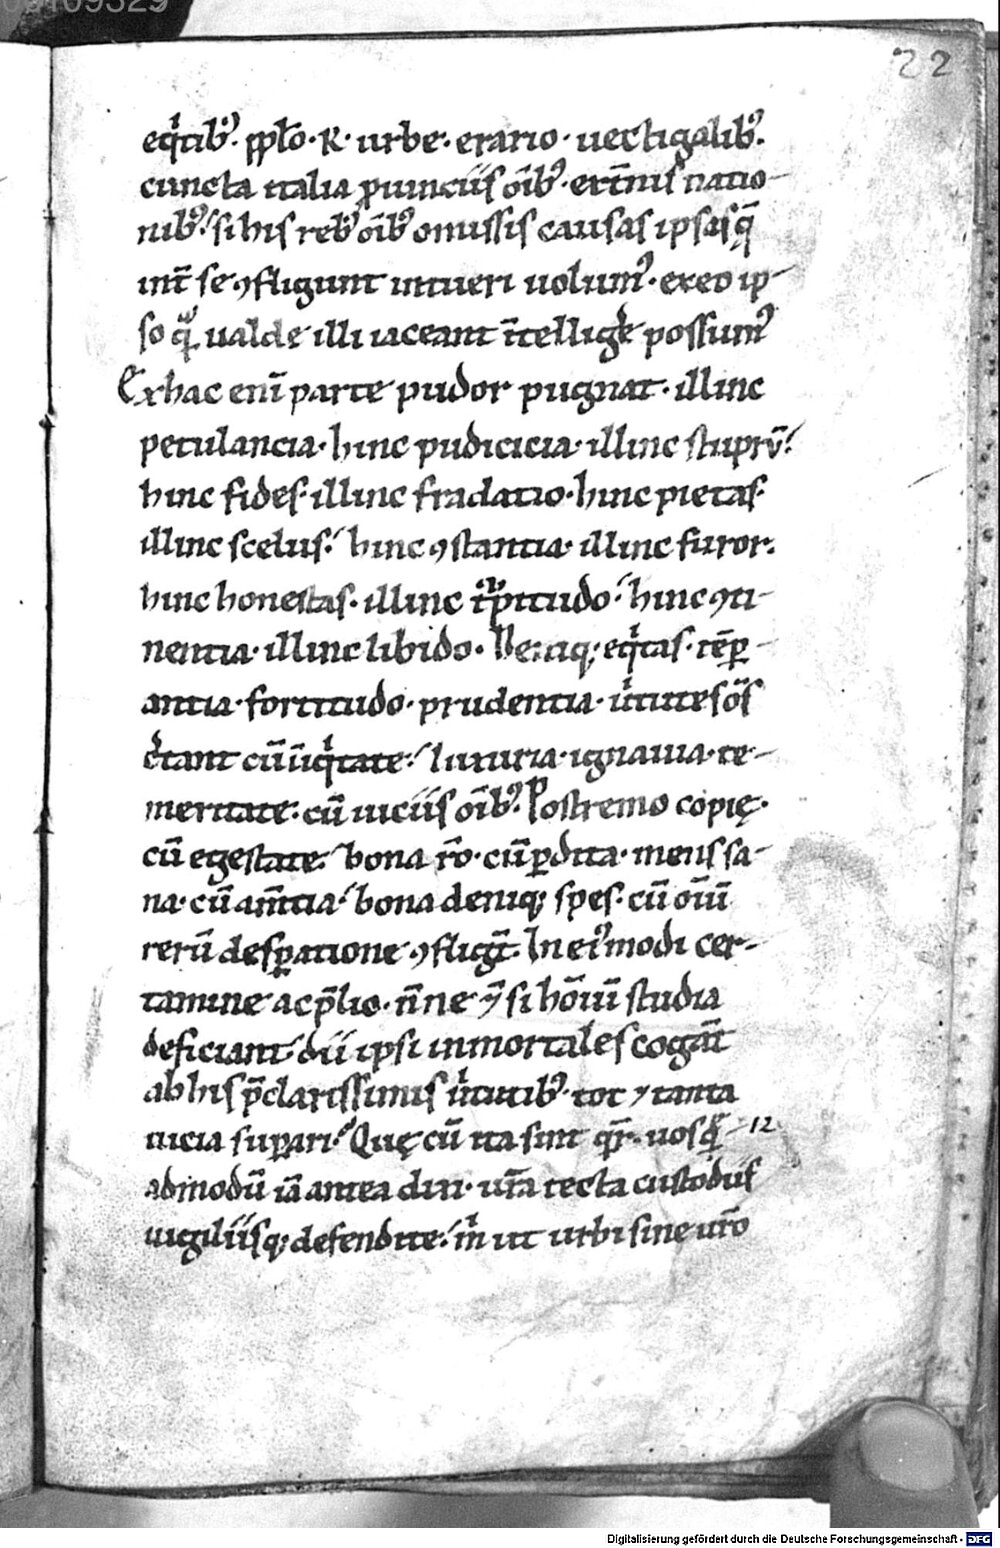 09109329
22
eqͥtib᷒. pplo·R· urbe· erario· uectigalib᷒.
cuncta italia ꝓuinciis oīb᷒· exťnis natio-
nib᷒. si his reb᷒ oīb᷒ omissis causas ipsas q̄
inť se ꝯfligunt intueri uolum᷒· ex eo ip-
so qͣ ualde illi iaceant ītellige᷑ possum᷒
Ex hac enī parte pudor pugnat· illinc
petulancia· hinc pudicicia· illinc stuprū.
hinc fides· illinc fradatio· hinc pietas·
illinc scelus. hinc ꝯstantia· illinc furor.
hinc honestas· illinc t᷑pitudo. hinc ꝯti-
nentia· illinc libido. Deniq; eqͥtas· tēꝑ-
antia· fortitudo· prudentia· uͥtutes ōs
c᷑tant cū iniqͥtate. luxuria· ignauia· te-
meritate· cū uiciis oīb᷒. Postremo copię·
cū egestate· bona rō· cū ꝑdita· mens sa-
na· cū am̄tia. bona deniq; spes· cū oīū
rerū desꝑatione ꝯfligť. In ei᷒modi cer-
tamine ac p̄lio· nn̄e ⁊ si hoīū studia
deficiant dii ipsi inmortales cogāt
ab his p̄clarissimis uͥtutib᷒· tot ⁊ tanta
uicia suꝑari. Quę cū ita sint qr̄· uos qͣ- 12
admodū iā antea dixi· ur̄a tecta custodiis
uigiliisq; defendite. mͥ ut urbi sine ur̄o
Digitalisierung gefördert durch die Deutsche Forschungsgemeinschaft - DFG